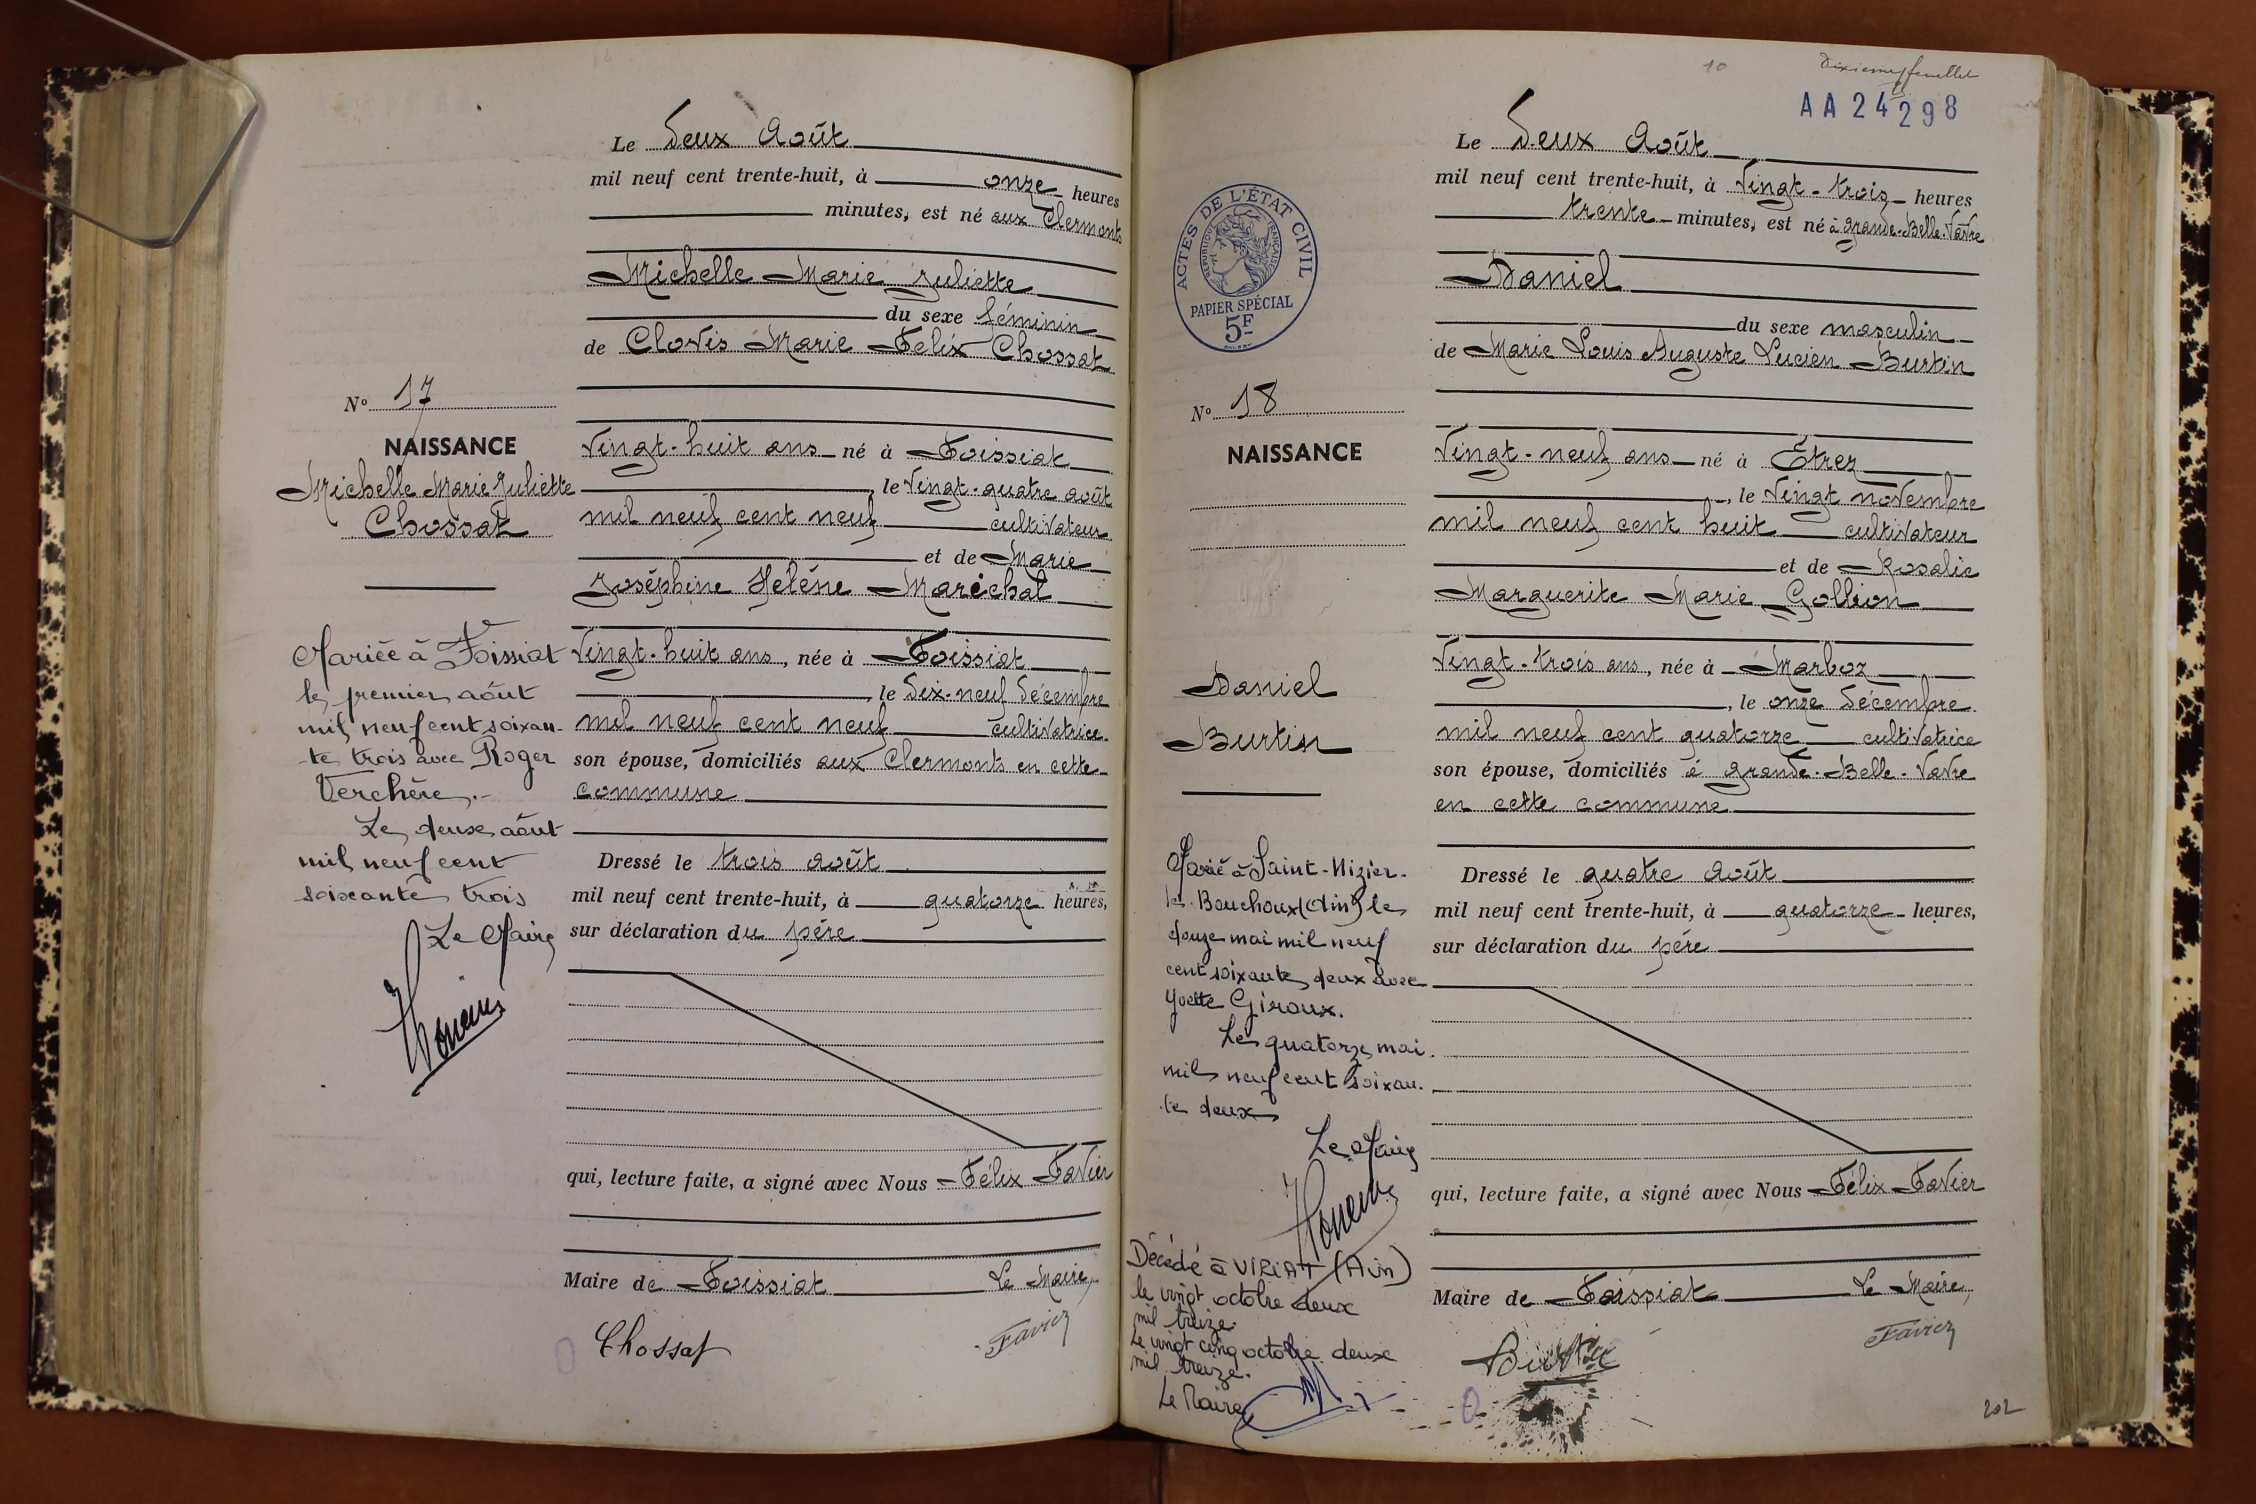 Le Deux Août
mil neuf cent trente-huit, à onze heures
minutes, est né aux Clermonts
Michelle Marie Juliette
du sexe féminin
de Clovis Marie Félix Chossat
N° 17
NAISSANCE
Michelle Marie Juliette
Chossat
Vingt-huit ans né à Foissiat
, le Vingt-quatre août
mil neuf cent neuf cultivateur
et de Marie
Joséphine Hélène Maréchal
Vingt-huit ans, née à Foissiat
, le Dix-neuf Décembre
mil neuf cent neuf cultivatrice
son épouse, domiciliés aux Clermonts en cette
commune
Mariée à Foissiat
le premier août
mil neuf cent soixan-
te trois avec Roger
Verchère.-
Le deux août
mil neuf cent
soixante trois
Le Maire
Dressé le trois août
mil neuf cent trente-huit, à quatorze heures,
sur déclaration du père
qui, lecture faite, a signé avec Nous Félix Favier
Maire de Foissiat Le Maire,
Chossat Favier
10 Dixième feuillet
AA 24298
Le Deux Août
mil neuf cent trente-huit, à Vingt-trois heures
trente minutes, est né à Grande-Belle-Vavre
ACTES DE L'ÉTAT CIVIL
RÉPUBLIQUE FRANÇAISE
PAPIER SPÉCIAL
5F
Daniel
du sexe masculin
de Marie Louis Auguste Lucien Burtin
N° 18
NAISSANCE
Vingt-neuf ans né à Étrez
, le Vingt novembre
mil neuf cent huit cultivateur
et de Rosalie
Marguerite Marie Gollion
Vingt-trois ans, née à Marboz
, le onze Décembre
mil neuf cent quatorze cultivatrice
son épouse, domiciliés à Grande-Belle-Vavre
en cette commune
Daniel
Burtin
Marié à Saint-Nizier-
le-Bouchoux (Ain) le
douze mai mil neuf
cent soixante deux avec
Yvette Giroux.
Le quatorze mai
mil neuf cent soixan-
te deux
Le Maire
Décédé à VIRIAT (Ain)
le vingt octobre deux
mil treize.
Le vingt cinq octobre deux
mil treize.
Le Maire
Dressé le quatre Août
mil neuf cent trente-huit, à quatorze heures,
sur déclaration du père
qui, lecture faite, a signé avec Nous Félix Favier
Maire de Foissiat Le Maire,
Burtin Favier
202